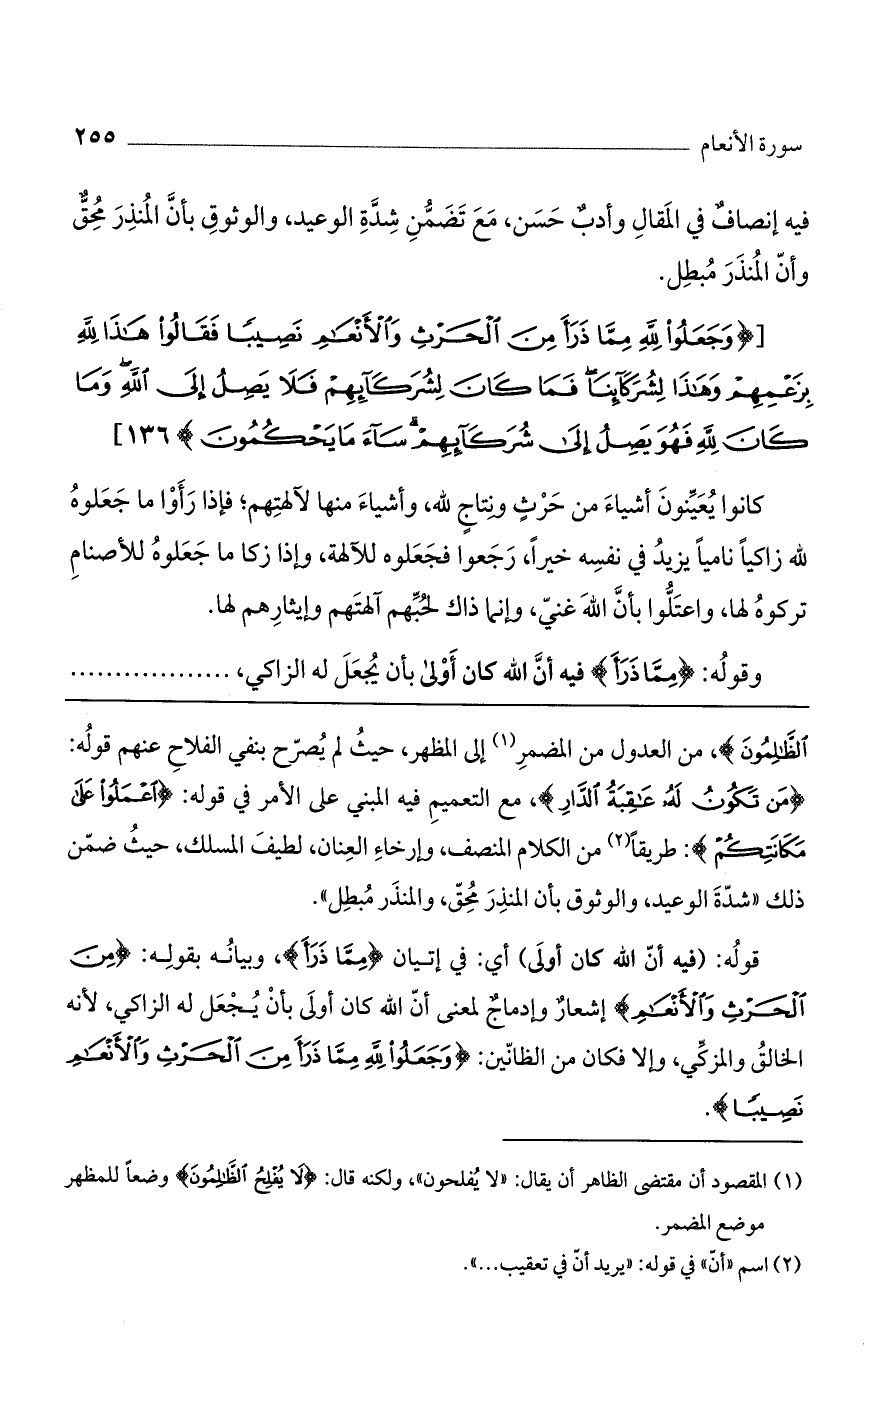 سورة الأنعام ٢٥٥
فيه إنصافٌ في المَقالِ وأدبٌ حَسَن، مَعَ تَضَمُّنِ شِدَّةِ الوعيد، والوثوقِ بأنَّ المُنذِرَ مُحِقٌّ
وأنّ المُنذَرَ مُبطِل.
[﴿وَجَعَلُوا۟ لِلَّهِ مِمَّا ذَرَأَ مِنَ ٱلْحَرْثِ وَٱلْأَنْعَٰمِ نَصِيبًا فَقَالُوا۟ هَٰذَا لِلَّهِ
بِزَعْمِهِمْ وَهَٰذَا لِشُرَكَآئِنَا ۖ فَمَا كَانَ لِشُرَكَآئِهِمْ فَلَا يَصِلُ إِلَى ٱللَّهِ ۖ وَمَا
كَانَ لِلَّهِ فَهُوَ يَصِلُ إِلَىٰ شُرَكَآئِهِمْ ۗ سَآءَ مَا يَحْكُمُونَ﴾ ١٣٦]
كانوا يُعَيِّنونَ أشياءَ من حَرْثٍ ونِتاجٍ لله، وأشياءَ منها لآلهتِهم؛ فإذا رَأَوْا ما جَعَلوهُ
لله زاكياً نامياً يزيدُ في نفسِه خيراً، رَجَعوا فجَعَلوه للآلهة، وإذا زكا ما جَعَلوهُ للأصنامِ
تركوهُ لها، واعتَلُّوا بأنَّ اللهَ غنيّ، وإنما ذاك لحُبِّهم آلهتَهم وإيثارِهم لها.
وقولُه: ﴿مِمَّا ذَرَأَ﴾ فيه أنَّ الله كان أَوْلىٰ بأن يُجعَلَ له الزاكي، ..................
ٱلظَّٰلِمُونَ﴾، من العدول من المضمرِ(١) إلى المظهر، حيثُ لم يُصرّح بنفي الفلاحِ عنهم قولُه:
﴿مَن تَكُونُ لَهُۥ عَٰقِبَةُ ٱلدَّارِ﴾، مع التعميمِ فيه المبني على الأمر في قوله: ﴿ٱعْمَلُوا۟ عَلَىٰ
مَكَانَتِكُمْ﴾: طريقاً(٢) من الكلام المنصف، وإرخاءِ العِنان، لطيفَ المسلك، حيثُ ضمّن
ذلك «شدّةَ الوعيد، والوثوق بأن المنذِرَ مُحِقّ، والمنذَر مُبطِل».
قولُه: (فيه أنّ الله كان أولَى) أي: في إتيان ﴿مِمَّا ذَرَأَ﴾، وبيانُه بقولِه: ﴿مِنَ
ٱلْحَرْثِ وَٱلْأَنْعَٰمِ﴾ إشعارٌ وإدماجٌ لمعنى أنّ الله كان أولَى بأنْ يُجْعَل له الزاكي، لأنه
الخالقُ والمزكِّي، وإلا فكان من الظانّين: ﴿وَجَعَلُوا۟ لِلَّهِ مِمَّا ذَرَأَ مِنَ ٱلْحَرْثِ وَٱلْأَنْعَٰمِ
نَصِيبًا﴾.
(١) المقصود أن مقتضى الظاهر أن يقال: «لا يُفلحون»، ولكنه قال: ﴿لَا يُفْلِحُ ٱلظَّٰلِمُونَ﴾ وضعاً للمظهر
موضع المضمر.
(٢) اسم «أنّ» في قوله: «يريد أنّ في تعقيب...».